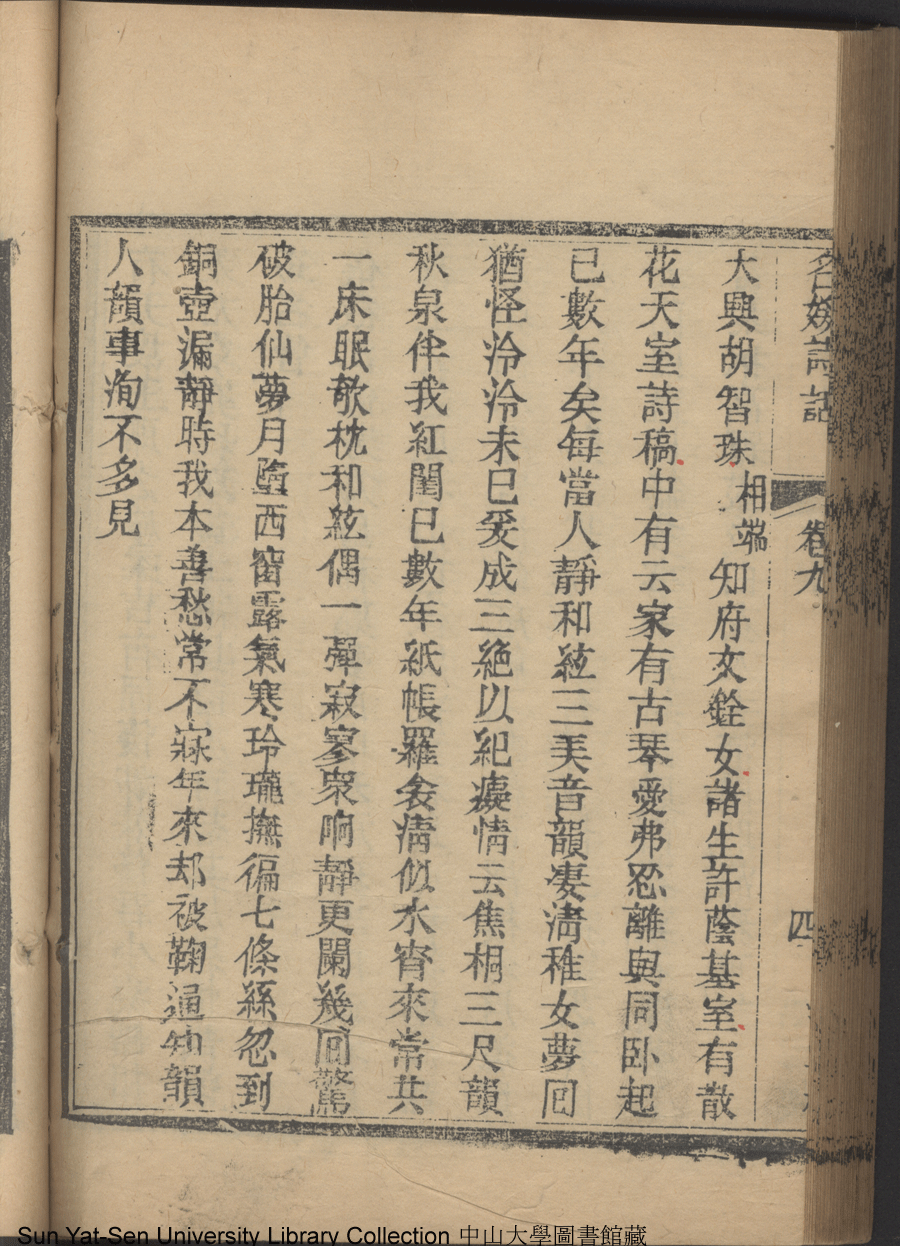 名媛詩話 卷九 四
大興胡智珠相端知府文銓女諸生許蔭基室有散
花天室詩稿中有云家有古琴愛弗忍離與同臥起
已數年矣每當人靜和絃三美音韻淒淸稚女夢回
猶怪泠泠未已爰成三絕以紀癡情云焦桐三尺韻
秋泉伴我紅閨已數年紙帳羅衾淸似水宵來常共
一床眠欹枕和絃偶一彈寂寥衆响靜更闌幾回驚
破胎仙夢月墮西窗露氣寒玲瓏撫徧七條絲忽到
銅壺漏靜時我本善愁常不寐年來却被鞠通知韻
人韻事洵不多見
Sun Yat-Sen University Library Collection 中山大學圖書館藏